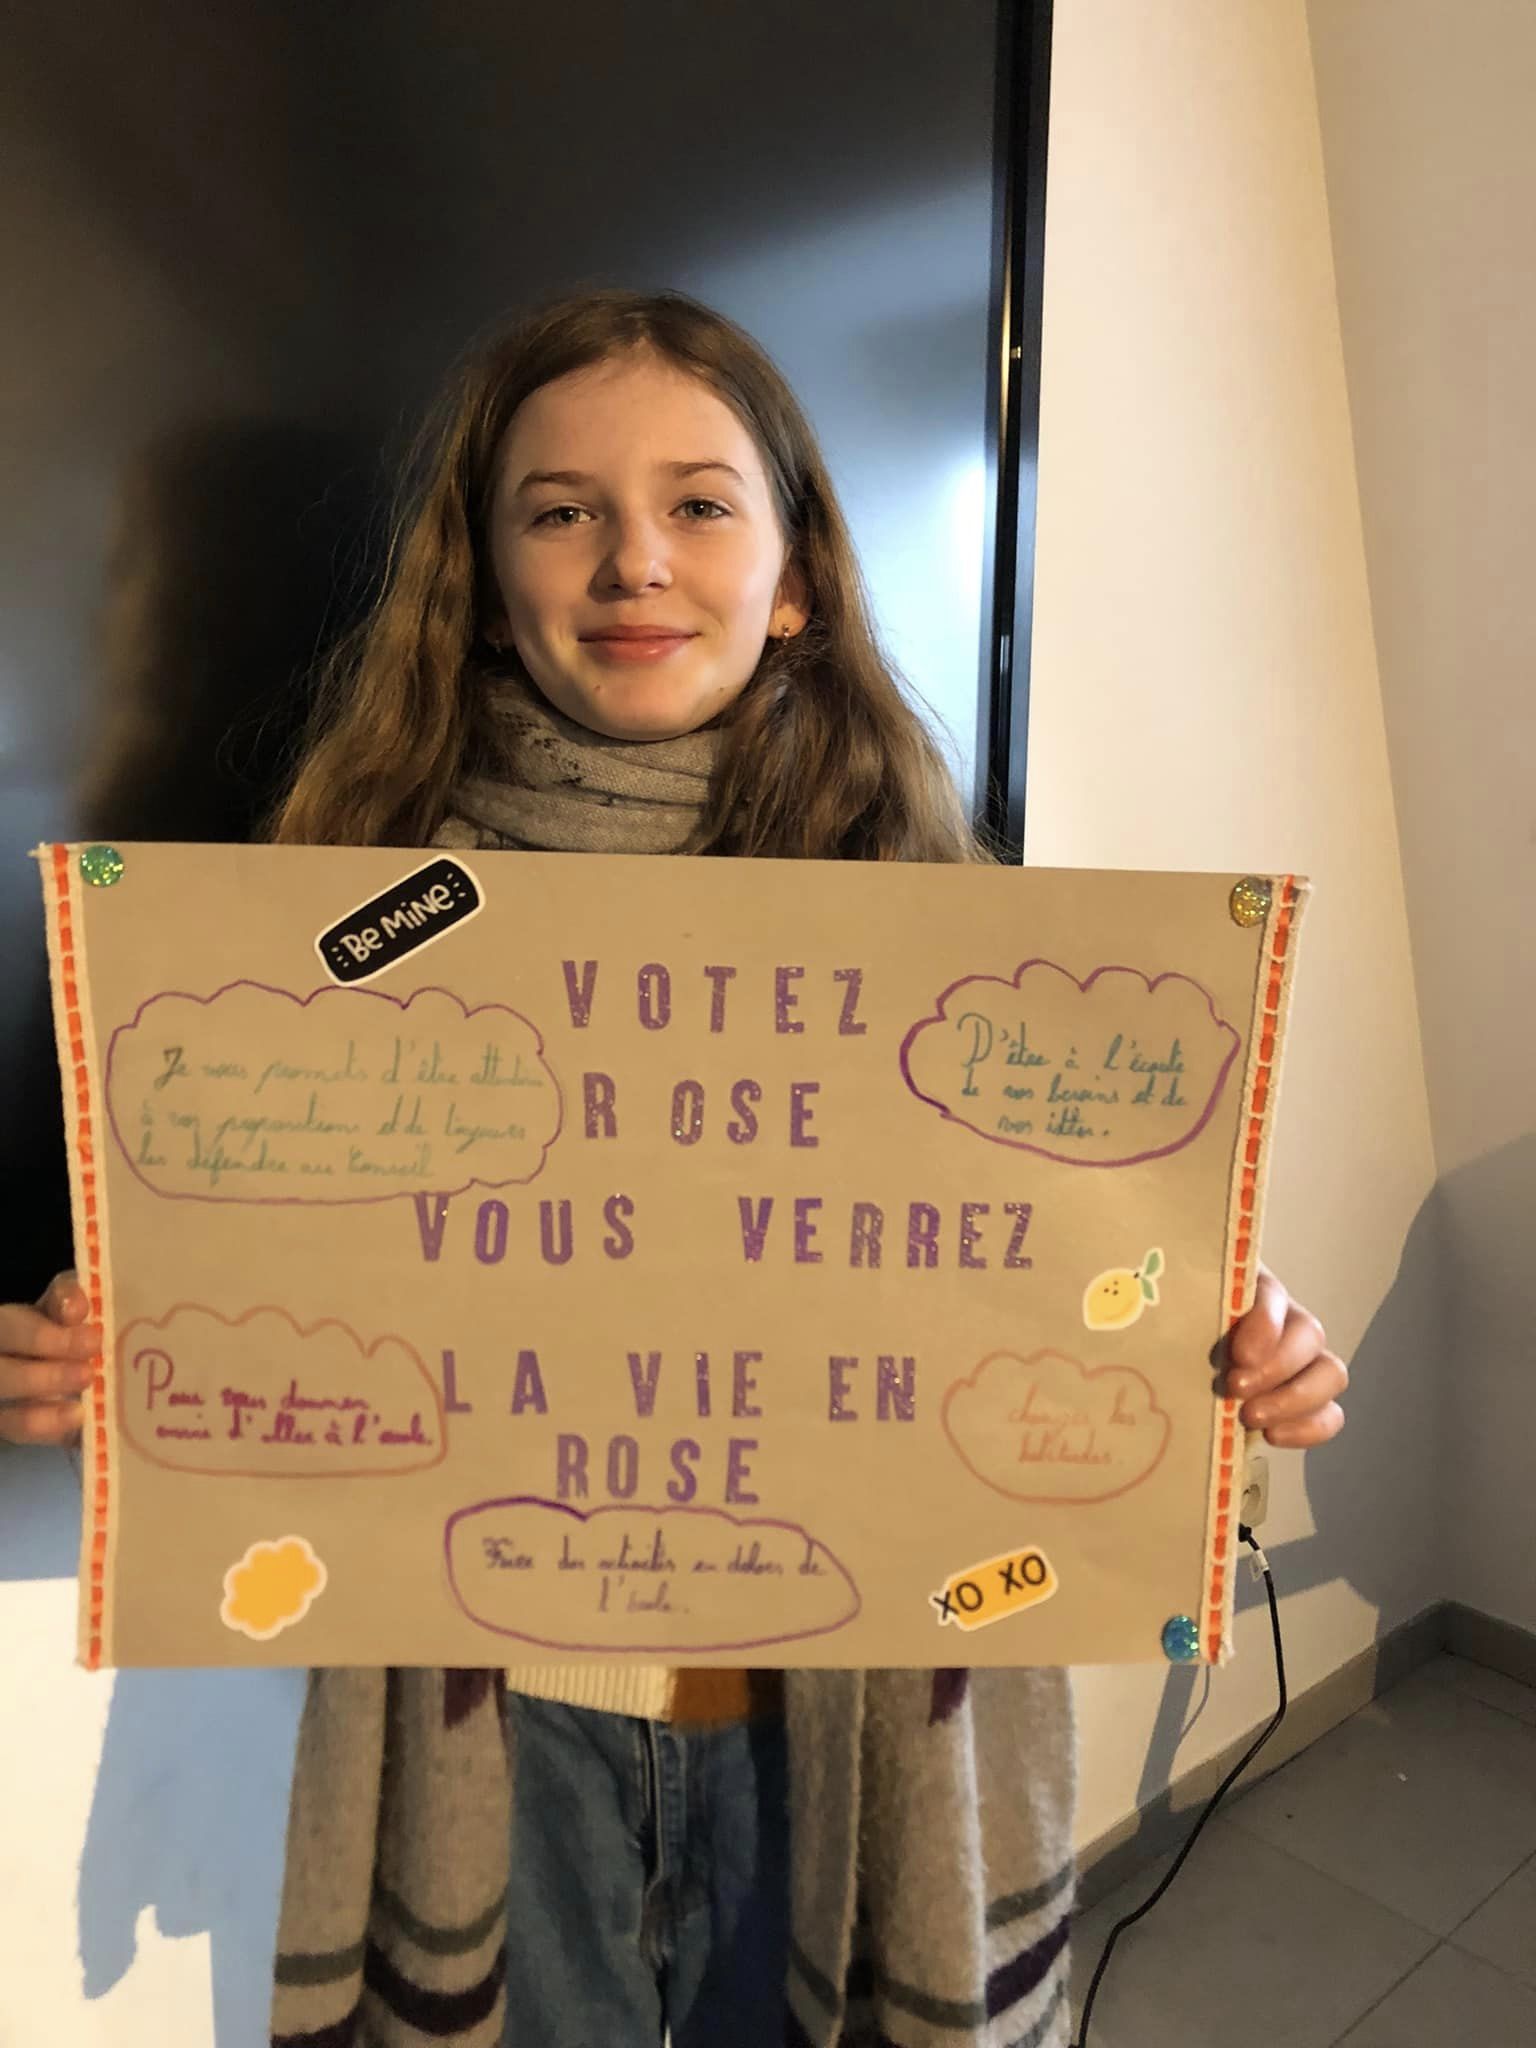 BE MINE
VOTEZ
ROSE
VOUS VERREZ
LA VIE EN
ROSE
Je vous promets d'être attentive
à vos propositions et de toujours
les défendre au Conseil
D'être à l'écoute
de vos besoins et de
vos idées.
Pour vous donner
envie d'aller à l'école.
changer les
habitudes.
Faire des activités en dehors de
l'école.
XO XO